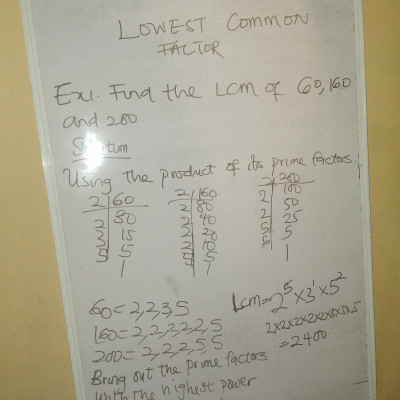 LOWEST COMMON
FACTOR
Ex1. Find the Lcm of 60, 160
and 200
Solution
Using the product of its prime factors.
2 60
2 30
3 15
5 5
1
2 160
2 80
2 40
2 20
2 10
5 5
1
2 200
2 100
2 50
5 25
5 5
1
60 = 2,2,3,5
160 = 2,2,2,2,2,5
200 = 2,2,2,5,5
Bring out the prime factors
with the highest power
Lcm = 2⁵ x 3¹ x 5²
2x2x2x2x2x3x5x5
= 2400